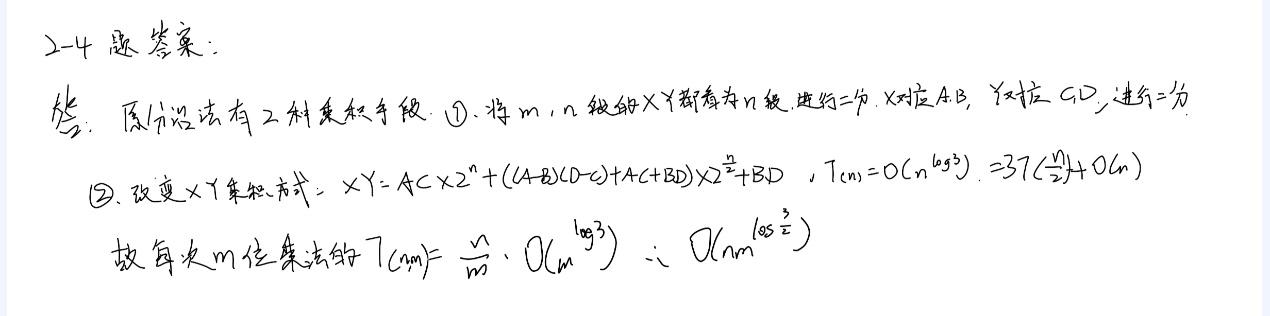 2-4 题 答案:
答: 原分治法有2种乘积手段. ①. 将m,n级的XY都看为n级.进行二分. X对应A.B, Y对应C,D, 进行二分
②. 改变XY乘积方式: XY=AC×2ⁿ+((A-B)(D-C)+AC+BD)×2^(n/2)+BD , T(n)=O(n^log3). =3T(n/2)+O(n)
故每次m位乘法的T(m)= n/m · O(m^log3) ∴ O(nm^log 3/2)